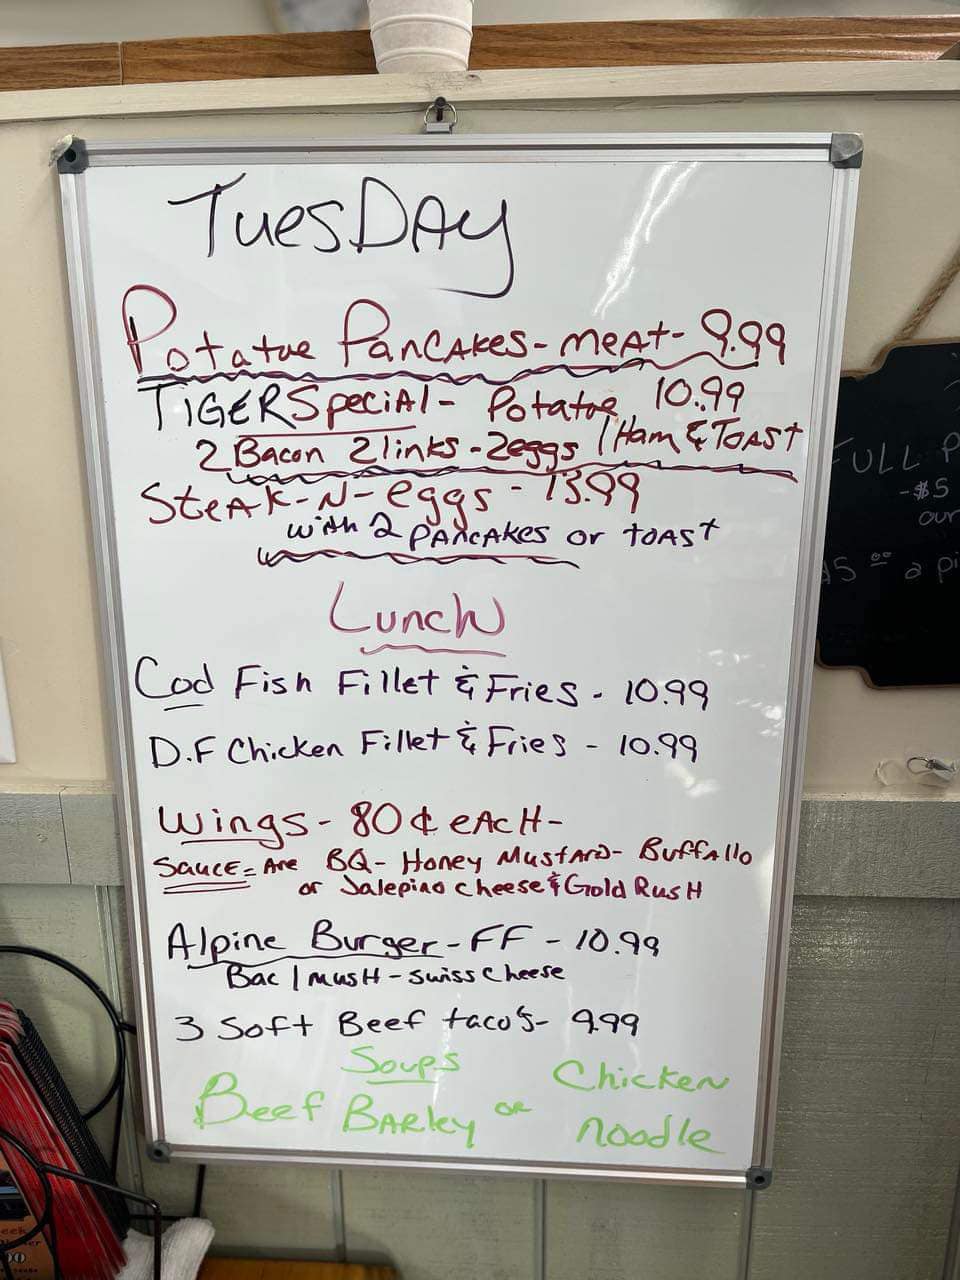 TuesDAy
Potatoe PanCAKes - meAt - 9.99
TIGER Special - Potatoe 10.99
2 Bacon 2 links - 2 eggs / Ham & TOAST
SteAK - N - eggs - 13.99
with 2 PANCAKES or TOAST
Lunch
Cod Fish Fillet & Fries - 10.99
D.F Chicken Fillet & Fries - 10.99
Wings - 80 ¢ eAcH -
Sauce = Are BQ - Honey Mustard - Buffallo
or Jalepino cheese & Gold RusH
Alpine Burger - FF - 10.99
Bac / musH - swiss cheese
3 Soft Beef taco's - 9.99
Soups
Beef BARley or Chicken noodle
FULL P
- $5
our
00 a pi